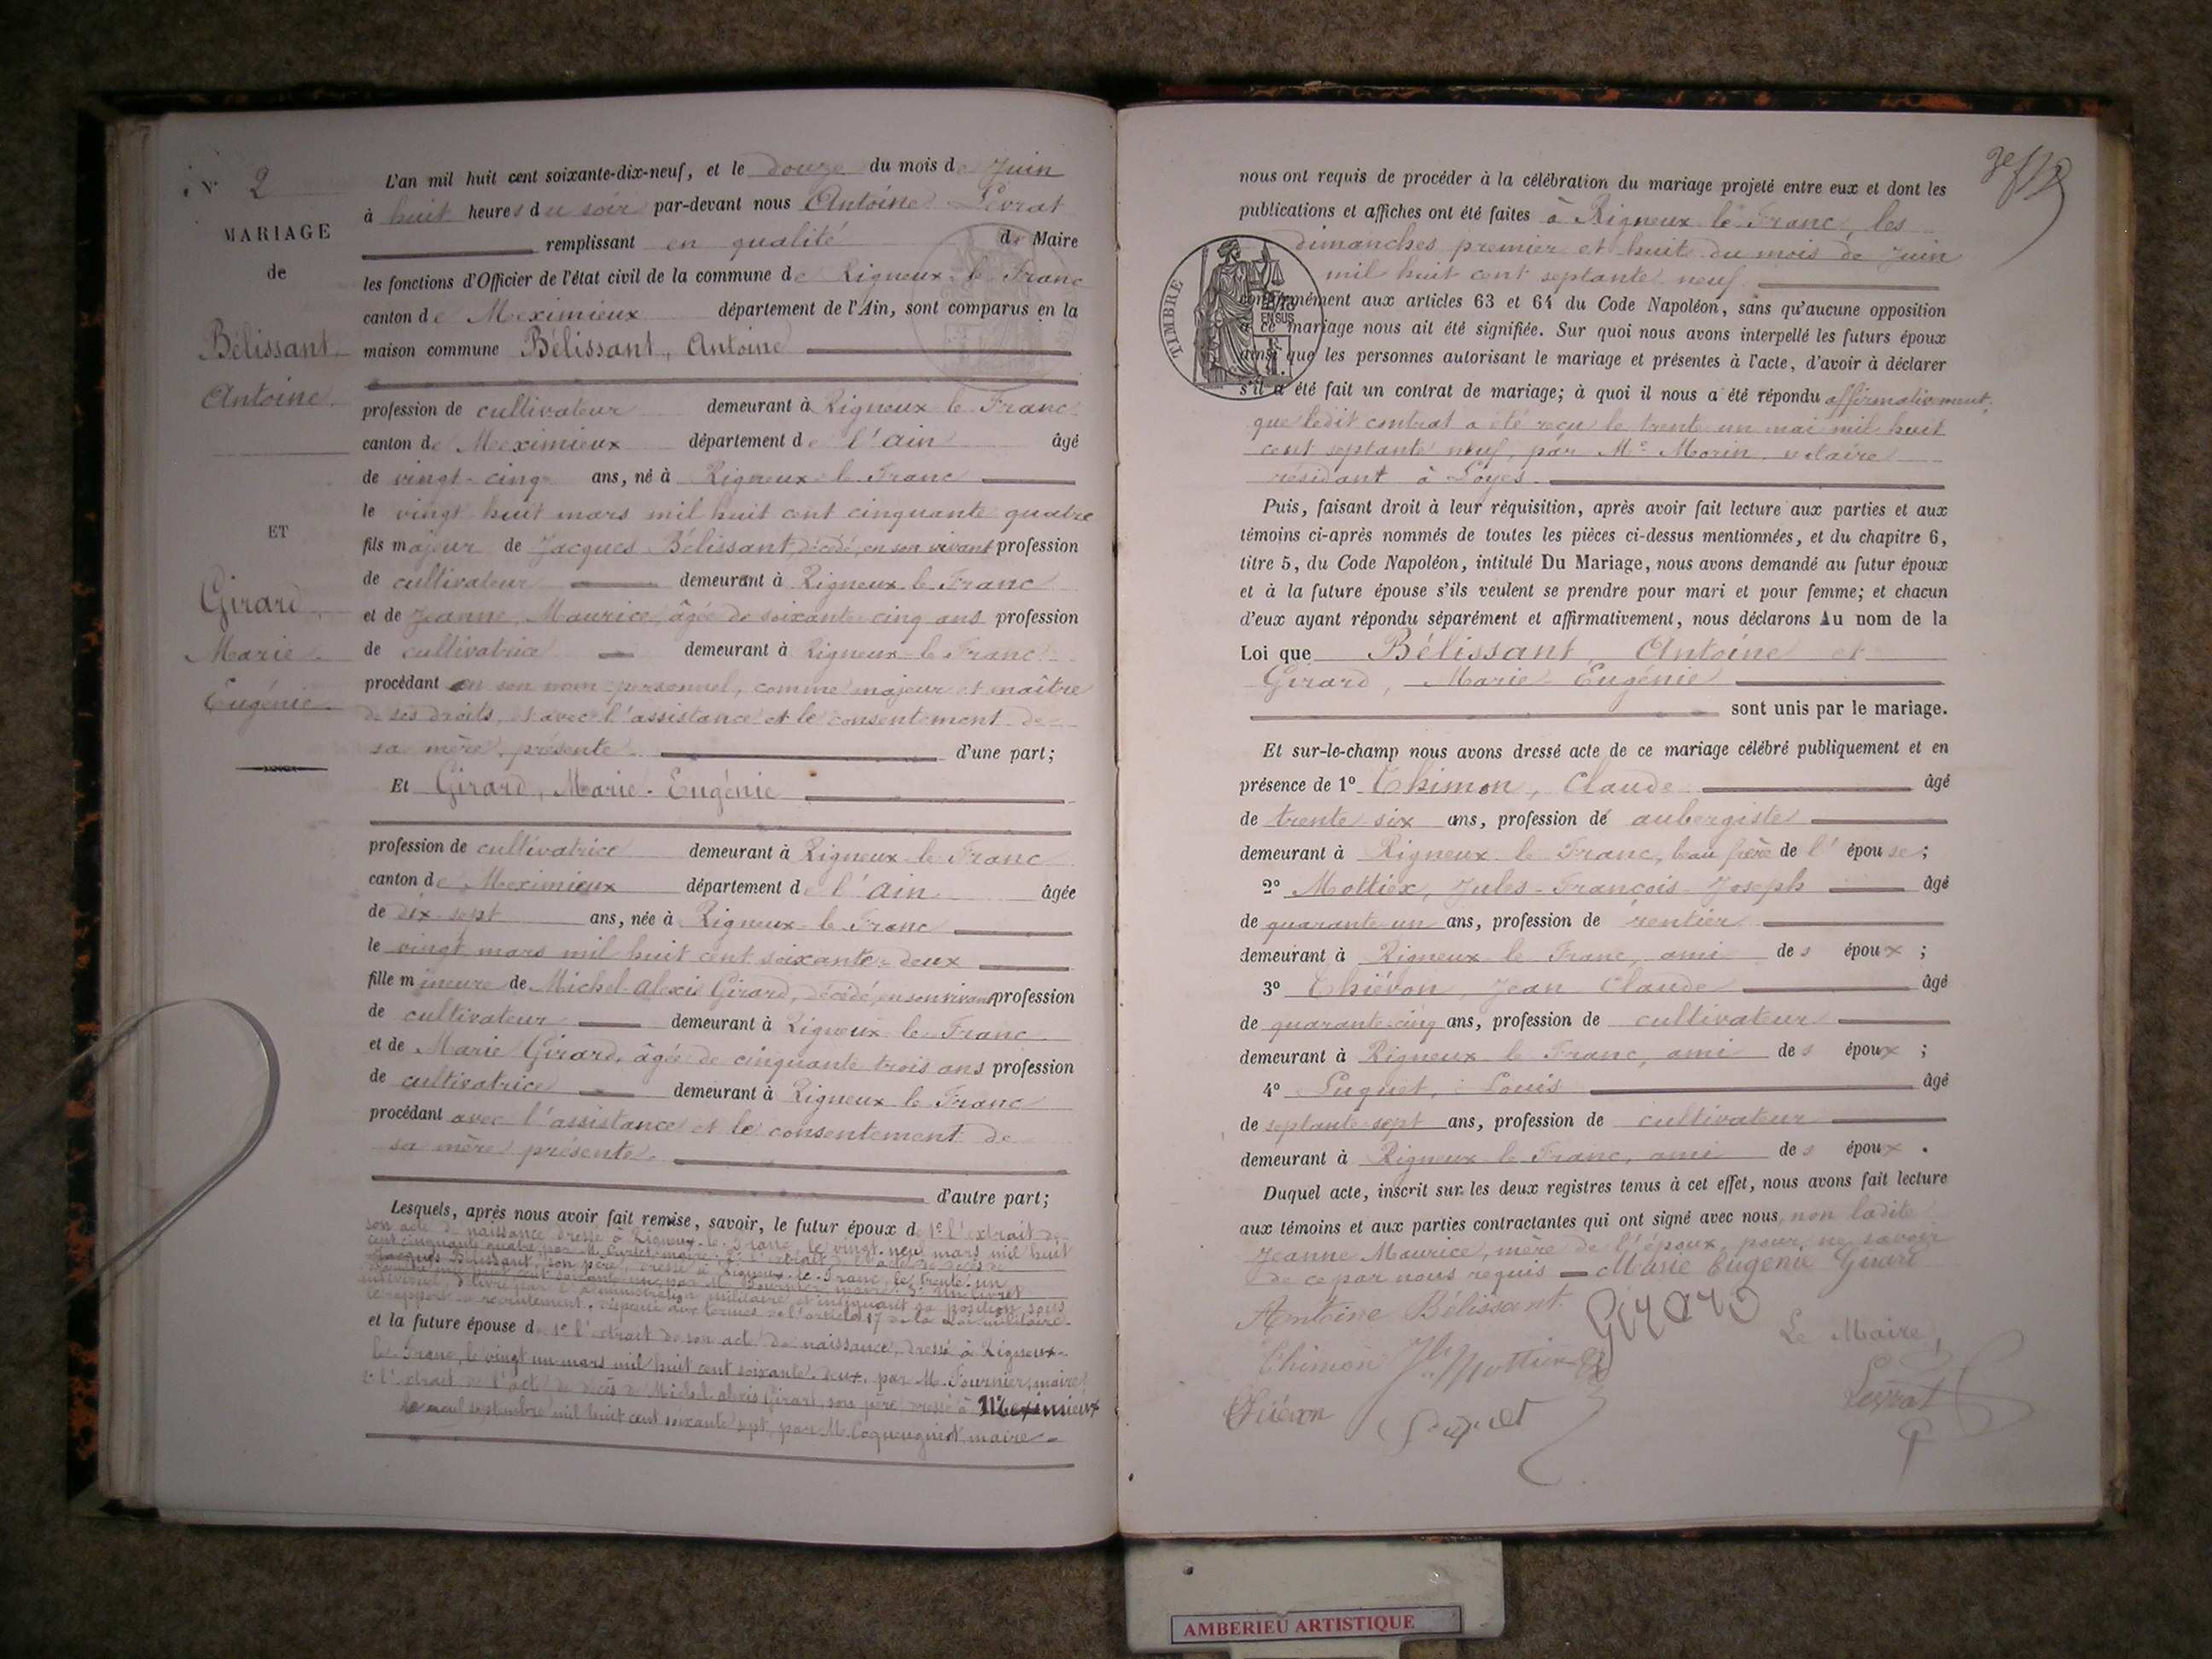 N° 2
MARIAGE
de
Bélissant
Antoine
ET
Girard
Marie
Eugénie
L'an mil huit cent soixante-dix-neuf, et le douze du mois de Juin
à huit heures du soir par-devant nous Antoine Levrat
remplissant en qualité de Maire
les fonctions d'Officier de l'état civil de la commune de Rigneux-le-Franc
canton de Meximieux département de l'Ain, sont comparus en la
maison commune Bélissant, Antoine
profession de cultivateur demeurant à Rigneux le Franc
canton de Meximieux département de l'ain âgé
de vingt-cinq ans, né à Rigneux le Franc
le vingt huit mars mil huit cent cinquante quatre
fils majeur de Jacques Bélissant, décédé, en son vivant profession
de cultivateur demeurant à Rigneux le Franc
et de Jeanne Maurice, âgée de soixante cinq ans profession
de cultivatrice demeurant à Rigneux-le-Franc
procédant en son nom personnel, comme majeur et maître
de ses droits, et avec l'assistance et le consentement de
sa mère, présente d'une part;
Et Girard, Marie-Eugénie
profession de cultivatrice demeurant à Rigneux le Franc
canton de Meximieux département de l'ain âgée
de dix-sept ans, née à Rigneux-le-Franc
le vingt mars mil huit cent soixante-deux
fille mineure de Michel-alexis Girard, décédé, en son vivant profession
de cultivateur demeurant à Rigneux le Franc
et de Marie Girard, âgée de cinquante trois ans profession
de cultivatrice demeurant à Rigneux le Franc
procédant avec l'assistance et le consentement de
sa mère présente.
d'autre part;
Lesquels, après nous avoir fait remise, savoir, le futur époux de 1° l'extrait de
son acte de naissance dressé à Rigneux-le-Franc, le vingt-neuf mars mil huit
cent cinquante quatre par M. Curlet maire. 2° l'extrait de l'acte de décès de
Jacques Bélissant, son père, dressé à Rigneux-le-Franc, le trente-un
mil huit cent soixante-un, par M. Fournier maire. 3° Un livret
individuel, délivré par l'administration militaire et indiquant sa position sous
le rapport du recrutement, dispensé aux termes de l'article 17 de la Loi militaire.
et la future épouse de 1° l'extrait de son acte de naissance, dressé à Rigneux-
le-Franc, le vingt un mars mil huit cent soixante-deux, par M. Fournier, maire
2° l'extrait de l'acte de décès de Michel alexis Girard, son père dressé à Meximieux
le septembre mil huit cent soixante sept, par M. Coqueugniot maire
nous ont requis de procéder à la célébration du mariage projeté entre eux et dont les
publications et affiches ont été faites à Rigneux le Franc, les
dimanches premier et huit du mois de Juin
mil huit cent septante neuf
TIMBRE
EN SUS
conformément aux articles 63 et 64 du Code Napoléon, sans qu'aucune opposition
à ce mariage nous ait été signifiée. Sur quoi nous avons interpellé les futurs époux
ainsi que les personnes autorisant le mariage et présentes à l'acte, d'avoir à déclarer
s'il a été fait un contrat de mariage; à quoi il nous a été répondu affirmativement.
que ledit contrat a été reçu le trente un mai mil huit
cent septante neuf, par Me Morin, notaire
résidant à Loyes.
Puis, faisant droit à leur réquisition, après avoir fait lecture aux parties et aux
témoins ci-après nommés de toutes les pièces ci-dessus mentionnées, et du chapitre 6,
titre 5, du Code Napoléon, intitulé Du Mariage, nous avons demandé au futur époux
et à la future épouse s'ils veulent se prendre pour mari et pour femme; et chacun
d'eux ayant répondu séparément et affirmativement, nous déclarons Au nom de la
Loi que Bélissant Antoine et
Girard, Marie-Eugénie
sont unis par le mariage.
Et sur-le-champ nous avons dressé acte de ce mariage célébré publiquement et en
présence de 1° Thimon, Claude âgé
de trente six ans, profession de aubergiste
demeurant à Rigneux le Franc, beau frère de l'épouse;
2° Mottiex, Jules-François-Joseph âgé
de quarante-un ans, profession de rentier
demeurant à Rigneux le Franc, ami des époux;
3° Thiévon, Jean Claude âgé
de quarante-cinq ans, profession de cultivateur
demeurant à Rigneux le Franc, ami des époux;
4° Puguet, Louis âgé
de septante-sept ans, profession de cultivateur
demeurant à Rigneux le Franc, ami des époux.
Duquel acte, inscrit sur les deux registres tenus à cet effet, nous avons fait lecture
aux témoins et aux parties contractantes qui ont signé avec nous, non ladite
Jeanne Maurice, mère de l'époux, pour ne savoir
de ce par nous requis Marie Eugénie Girard
Antoine Bélissant Girard
Le Maire,
Thimon Mottiex
Levrat
Thiévon Puguet
AMBERIEU ARTISTIQUE